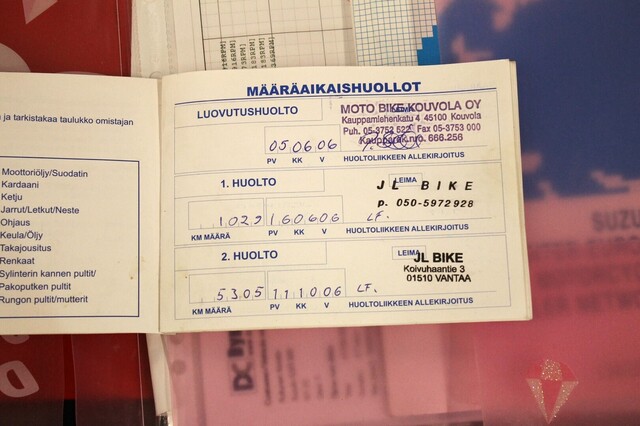 n ja tarkistakaa taulukko omistajan
Moottoriöljy/Suodatin
Kardaani
Ketju
Jarrut/Letkut/Neste
Ohjaus
Keula/Öljy
Takajousitus
Renkaat
Sylinterin kannen pultit/
Pakoputken pultit
Rungon pultit/mutterit
MÄÄRÄAIKAISHUOLLOT
LUOVUTUSHUOLTO
LEIMA
MOTO BIKE KOUVOLA OY
Kauppamiehenkatu 4 45100 Kouvola
Puh. 05-3752 522, Fax 05-3753 000
Kaupparek.nro. 666.256
05.06.06
PV KK V HUOLTOLIIKKEEN ALLEKIRJOITUS
1. HUOLTO
LEIMA
JL BIKE
p. 050-5972928
1029 16.06.06 LF.
KM MÄÄRÄ PV KK V HUOLTOLIIKKEEN ALLEKIRJOITUS
2. HUOLTO
LEIMA
JL BIKE
Koivuhaantie 3
01510 VANTAA
5305 11.10.06 LF.
KM MÄÄRÄ PV KK V HUOLTOLIIKKEEN ALLEKIRJOITUS
SUZU